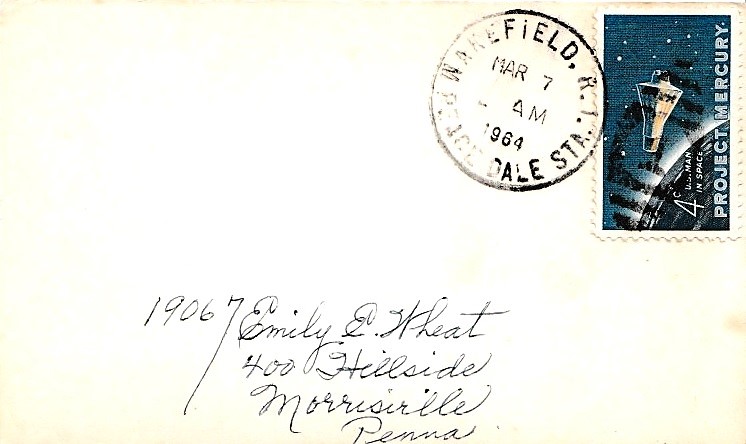 WAKEFIELD, R.I.
MAR 7
AM
1964
PEACE DALE STA.
4¢
U.S. MAN
IN SPACE
PROJECT MERCURY
19067
Emily E. Wheat
400 Hillside
Morrisville
Penna